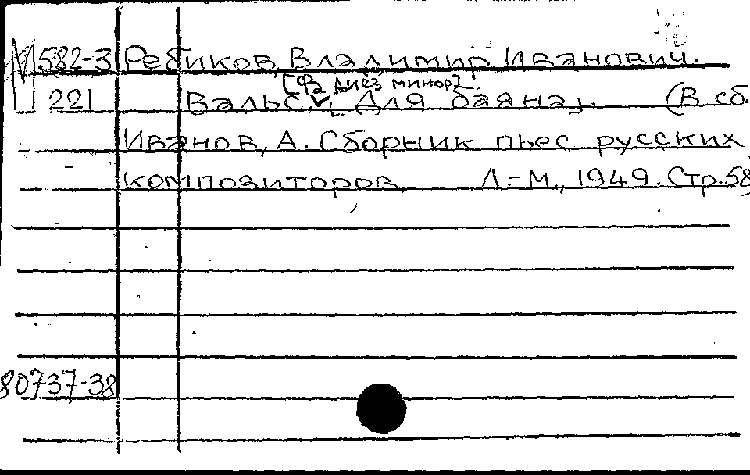 М 582-3 Ребиков, Владимир Иванович.
[фа диез минор].
221 Вальс. Для баяна. (В сб.
Иванов, А. Сборник пьес русских
композиторов. Л-М., 1949. Стр.58
80737-38